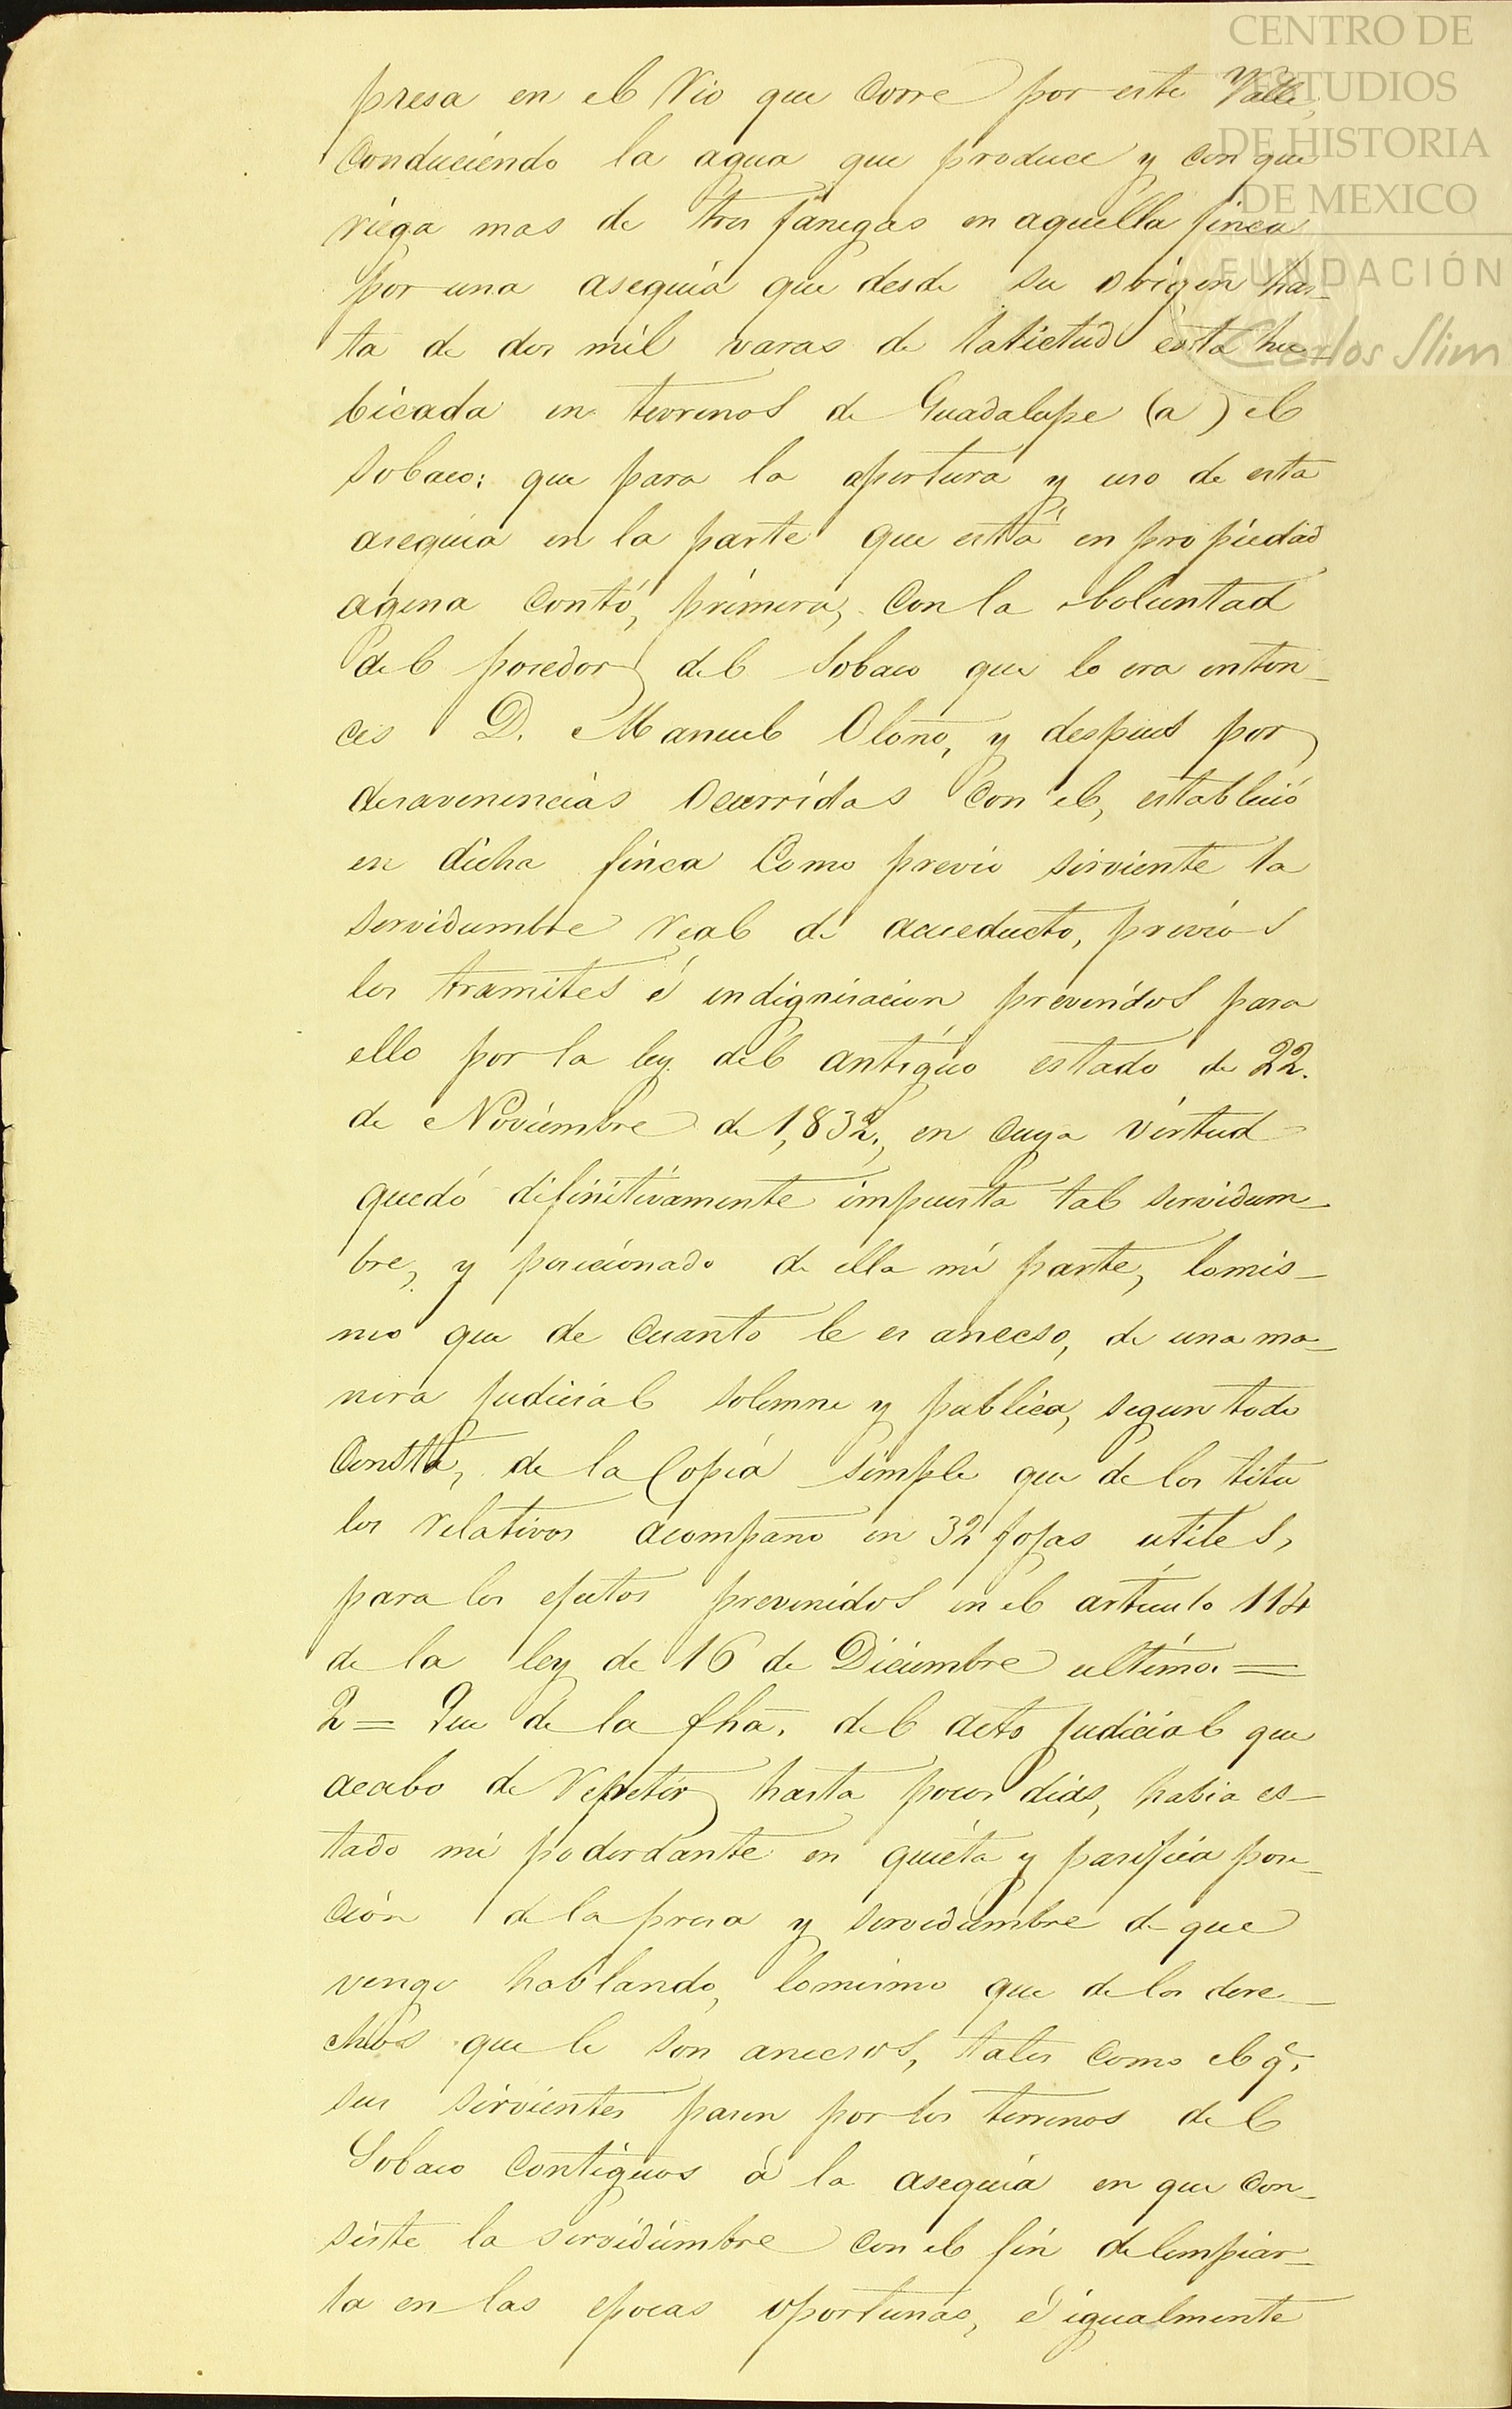 CENTRO DE
ESTUDIOS
DE HISTORIA
DE MEXICO
FUNDACIÓN
Carlos Slim
presa en el Rio que corre por este Valle,
conduciendo la agua que produce y con que
riega mas de tres fanegas en aquella finca
por una asequia que desde su origen has-
ta de dos mil varas de latictud esta hu-
bicada en terrenos de Guadalupe (a) el
Sobaco: que para la apertura y uso de esta
asequia en la parte que está en propiedad
agena contó, primera, con la boluntad
del poseedor del Sobaco que lo era enton-
ces D. Manuel Oloño, y despues por
desavenencias ocurridas con el, establció
en dicha finca como previo sirviente la
servidumbre real de acueducto, previos
los tramites é indignisacion prevenidos para
ello por la ley del antiguo estado de 22.
de Noviembre de 1,832., en cuya virtud
quedó difinitivamente impuesta tal servidum-
bre, y posicionado de ella mi parte, lo mis-
mo que de cuanto le es anecso, de una ma-
nera judicial solemne y publica, segun todo
consta, de la Copia simple que de los titu
los relativos acompaño en 32 fojas utiles,
para los efectos prevenidos en el articulo 114
de la ley de 16 de Diciembre ultimo. =
2 = Que de la fha. del acto judicial que
acabo de repetir hasta pocos dias, habia es-
tado mi poderdante en quieta y pasifica pose-
ción de la presa y servidumbre de que
vengo hablando, lo mismo que de los dere-
chos que le son anecsos, tales como el q.
sus sirvientes pasen por los terrenos del
Sobaco contiguos á la asequia en que con-
siste la servidumbre con el fin de limpiar-
la en las epocas oportunas, é igualmente